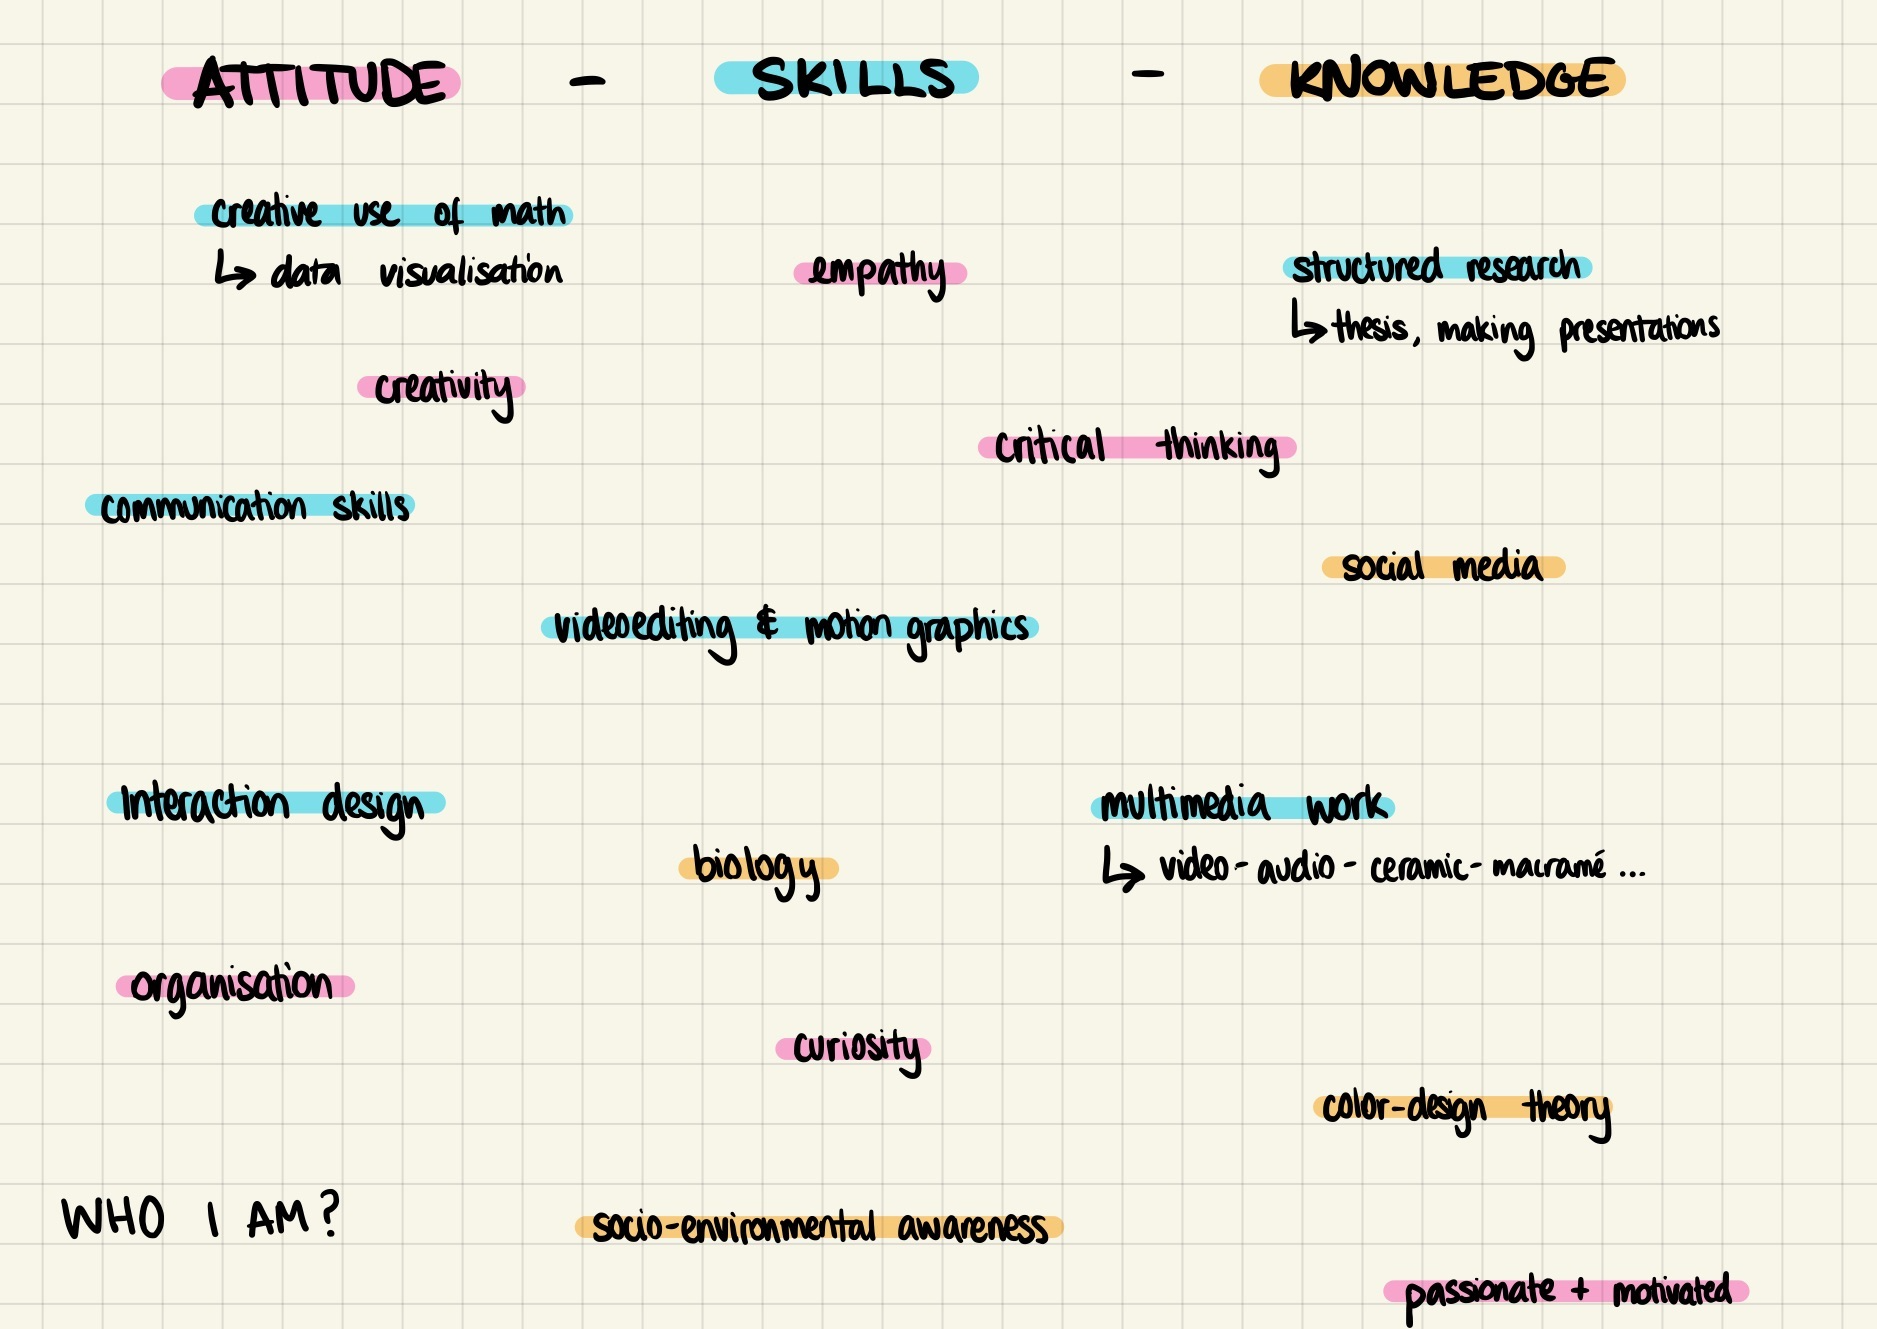 ATTITUDE - SKILLS - KNOWLEDGE
creative use of math
↳ data visualisation
empathy
structured research
↳ thesis, making presentations
creativity
critical thinking
communication skills
social media
videoediting & motion graphics
Interaction design
multimedia work
↳ video - audio - ceramic - macramé ...
biology
organisation
curiosity
color-design theory
WHO I AM?
socio-environmental awareness
passionate + motivated